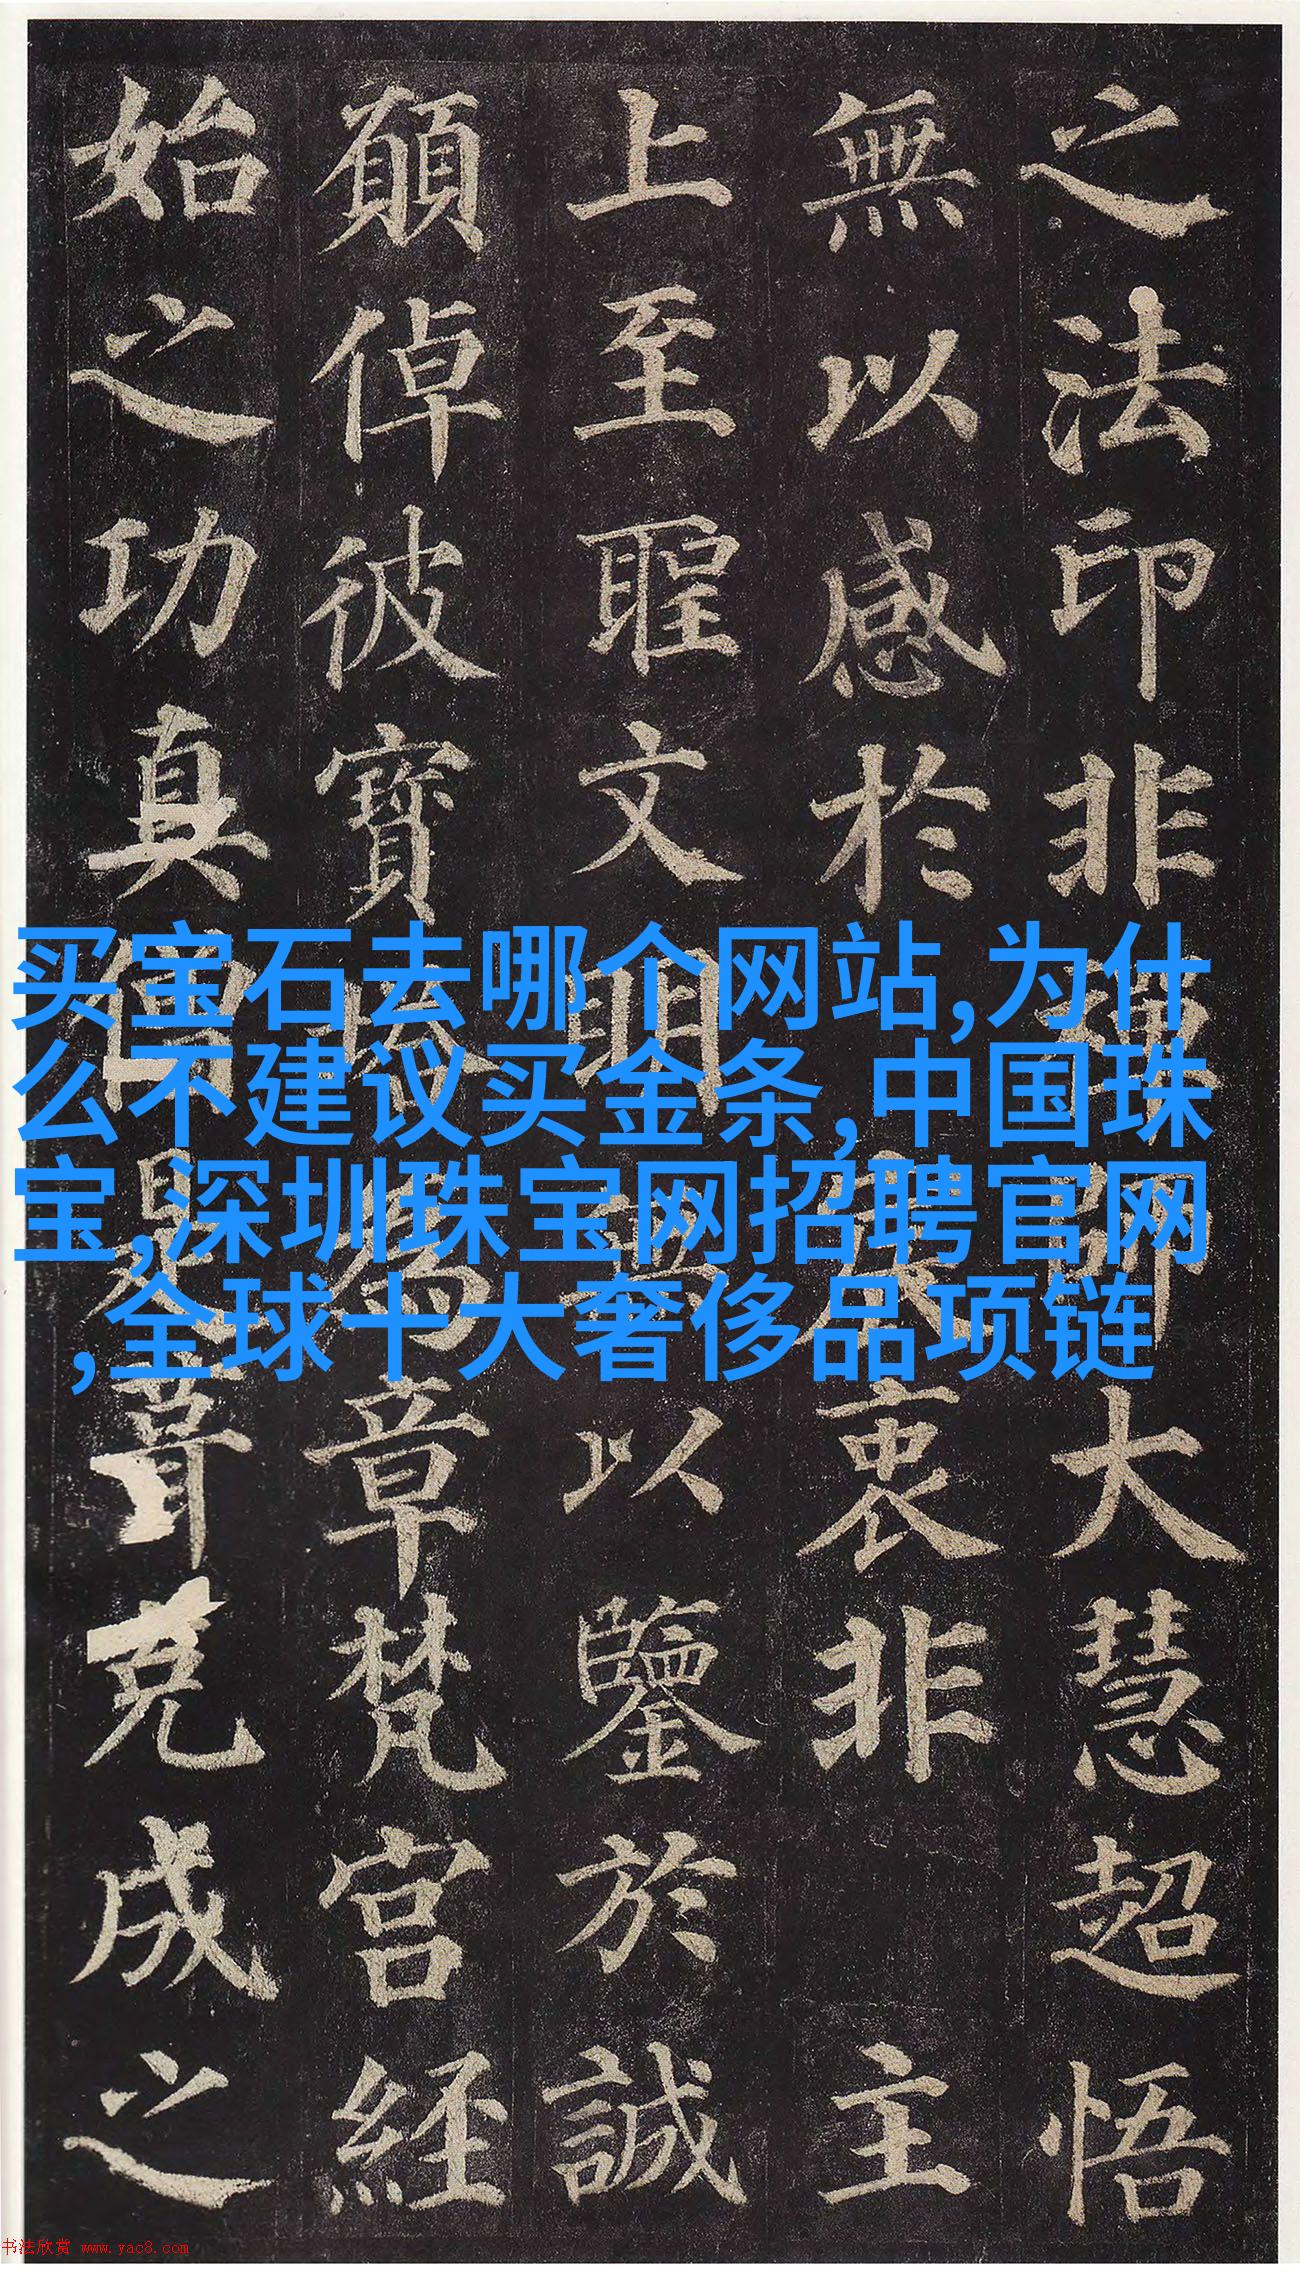 之法印非禪師大慧超悟
無以感於宸衷非主
上至聖文明無以鑒於誠
願倬彼寶塔為章梵宮經
始之功真僧是葺克成之
买宝石去哪个网站,为什
么不建议买金条,中国珠
宝,深圳珠宝网招聘官网
,全球十大奢侈品项链
书法欣赏 www.yac8.com